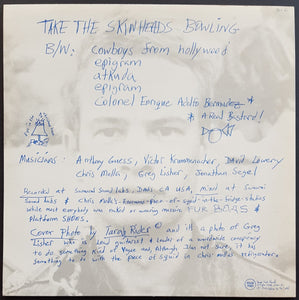 TAKE THE SKINHEADS BOWLING
B/W: Cowboys from hollywood
epigram
atkuda
epigram
Colonel Enrique Adolfo Bermudez
A Real Bastard!
Musicians: Anthony Guess, Victor Krummenacher, David Lowery
Chris Molla, Greg Lisher, Jonathan Segel
Recorded at Samurai Sound Labs, Davis CA USA, mixed at Samurai
Sound Labs & Chris Molla's piece-of-squid-in-the-fridge-studios
while most everybody was naked or wearing massive FUR BOAS &
Platform SHOES.
Cover Photo by Taras Ruler & is a photo of Greg
Lisher who is lead guitarist & leader of a worldwide conspiracy
to do something kind of vague and, although I'm not sure, it has
something to do with the piece of squid in Chris molla's refrigerator.